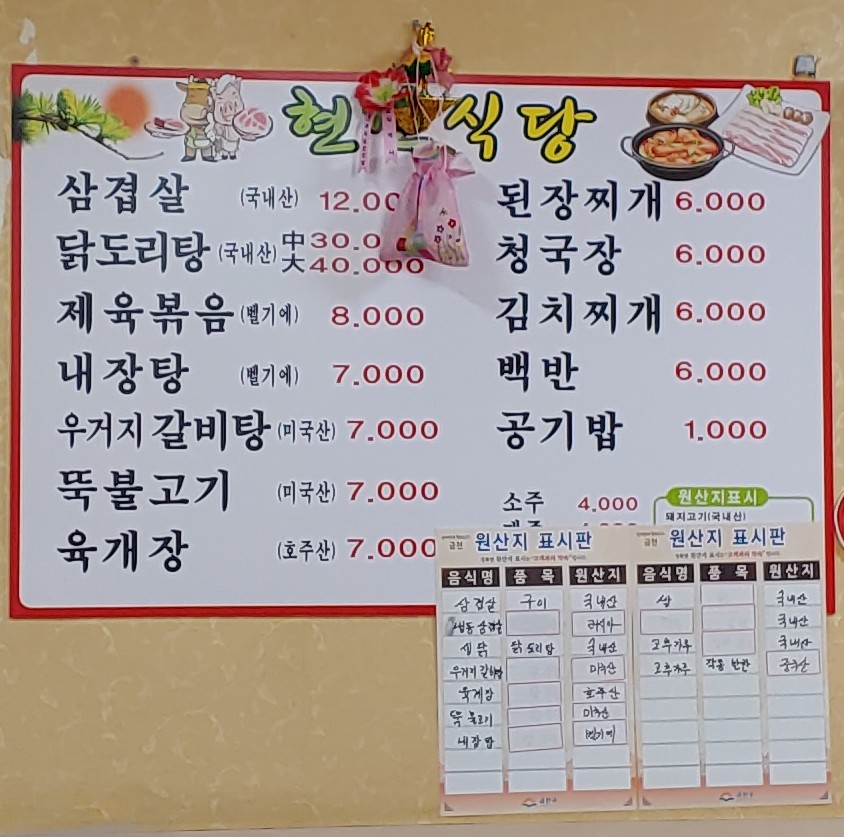 현 식당
삼겹살 (국내산) 12.00
닭도리탕 (국내산) 中 30.0
大 40.000
제육볶음 (벨기에) 8.000
내장탕 (벨기에) 7.000
우거지갈비탕 (미국산) 7.000
뚝불고기 (미국산) 7.000
육개장 (호주산) 7.000
된장찌개 6.000
청국장 6.000
김치찌개 6.000
백반 6.000
공기밥 1.000
소주 4.000
원산지표시
돼지고기(국내산)
금천 원산지 표시판
음식명 품목 원산지
삼겹살 구이 국내산
러시아
생닭 닭도리탕 국내산
우거지갈비탕 미국산
육계장 호주산
뚝불고기 미국산
내장탕 벨기에
금천구
금천 원산지 표시판
음식명 품목 원산지
쌀 국내산
국내산
고추가루 국내산
고추가루 중국산
금천구